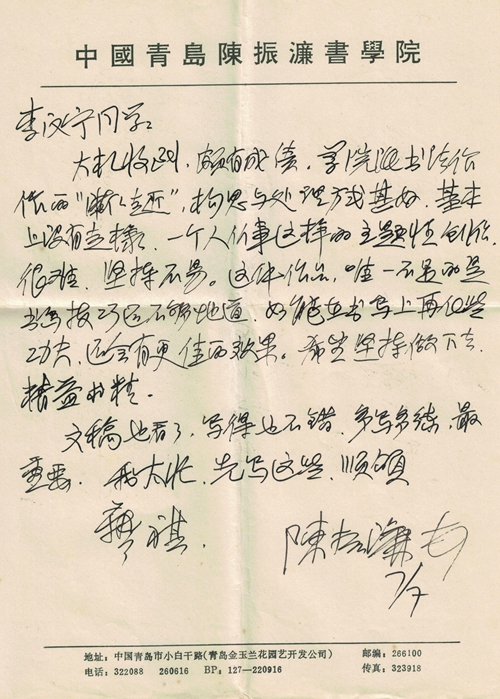 中國青島陳振濂書學院
李汉宁同学:
大札收到,颇有成绩,学院派书法价
作品“,构思与处理方式甚好,基本
上没有走样,一个人从事这样的主题性创作,
很难,坚持不易。这件作品,唯一不足的是
书写技巧还不够地道,如能在书写上再化些
功夫,还会有更佳的效果。希望坚持做下去,
精益求精。
文稿也看了,写得也不错,多写多练,最
重要。我太忙,先写这些,顺颂
艺祺.
陳振濂
7/7
地址:中国青岛市小白干路(青岛金玉兰花园艺开发公司) 邮编:266100
电话:322088 260616 BP:127-220916 传真:323918